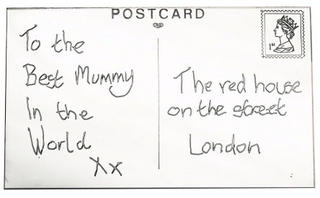 POSTCARD
To the
Best Mummy
In the
World
xx
1st
The red house
on the street
London